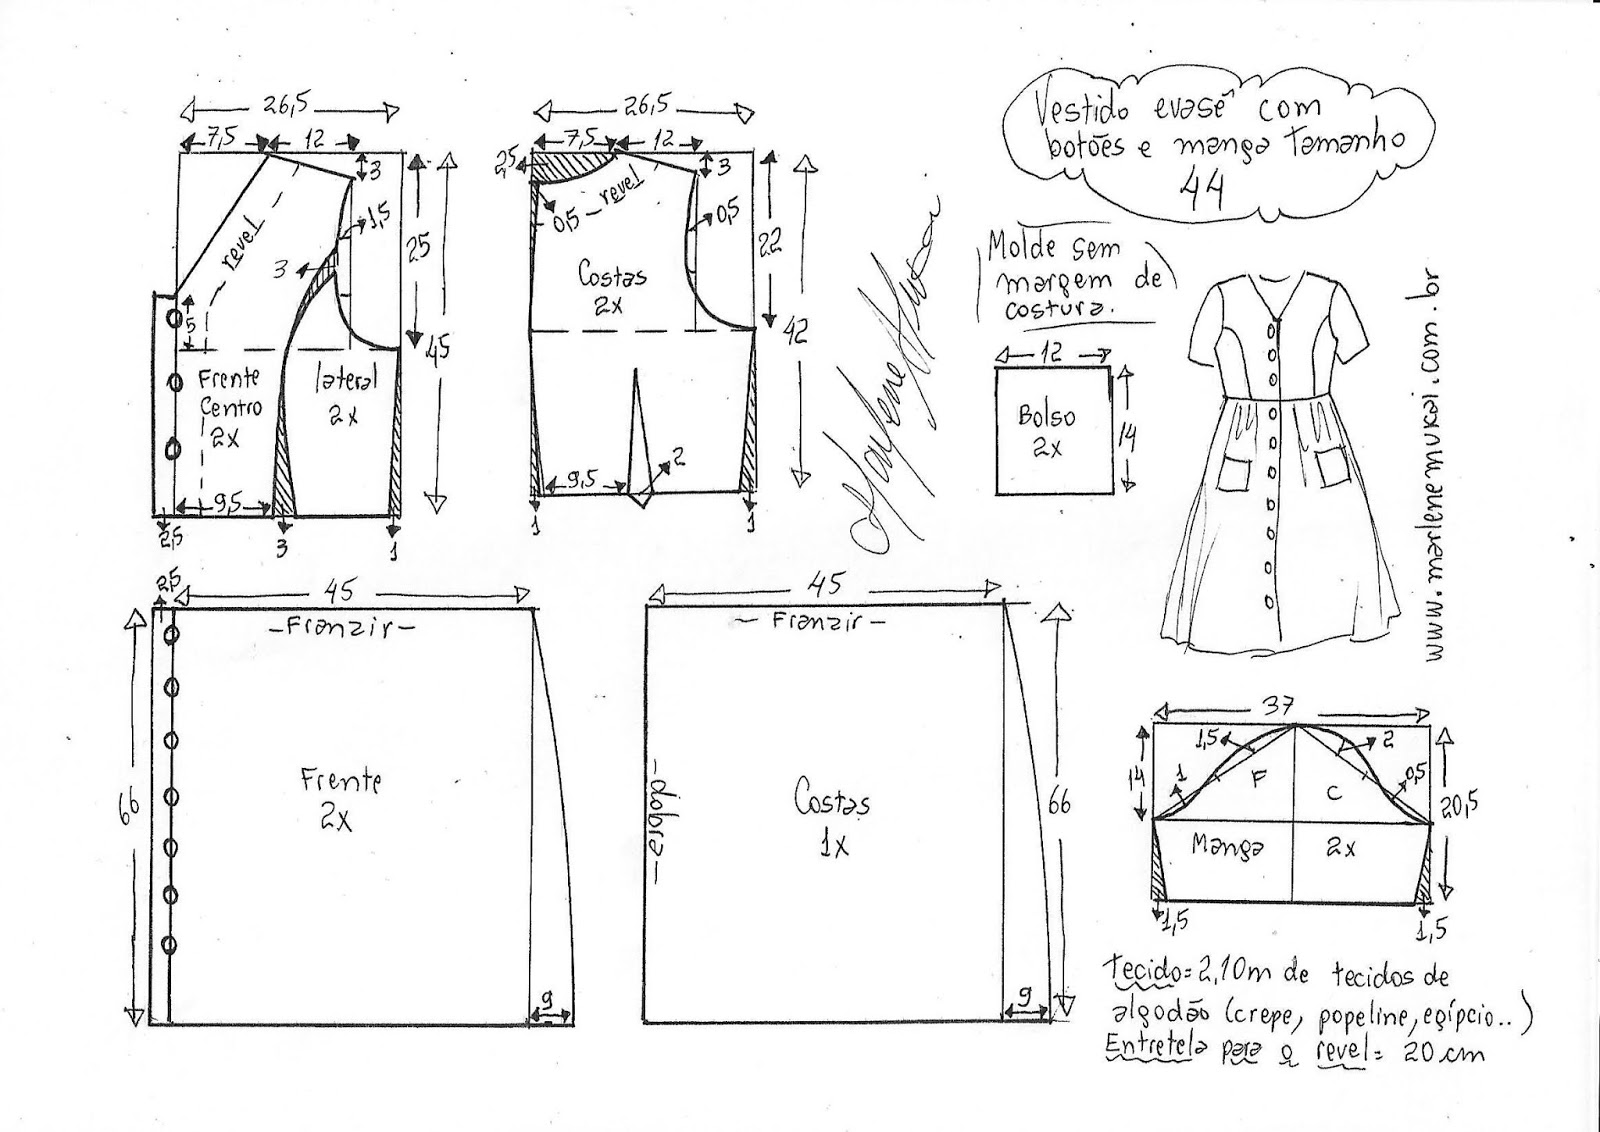 Vestido evasê com
botões e manga tamanho
44
Molde sem
margem de
costura.
26,5
7,5
12
3
1,5
25
45
revel
3
5
Frente
Centro
2x
lateral
2x
9,5
2,5
3
1
26,5
7,5
12
2,5
3
0,5
revel
0,5
22
42
Costas
2x
9,5
2
1
1
12
Bolso
2x
14
www.marlenemukai.com.br
2,5
45
-Franzir-
66
Frente
2x
9
45
- Franzir -
-dobra-
Costas
1x
66
9
37
1,5
2
14
1
F
C
0,5
20,5
Manga
2x
1,5
1,5
tecido=2,10m de tecidos de
algodão (crepe, popeline, egípcio..)
Entretela para o revel= 20 cm